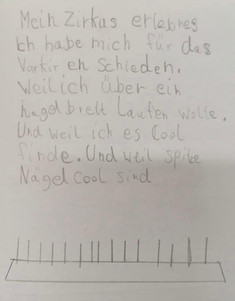 Mein Zirkus erlebnes
Ich habe mich für das
Varkir en schieden.
Weil ich über ein
nagelbrett Laufen wolte.
Und weil ich es Cool
finde. Und weil spize
Nägel cool sind